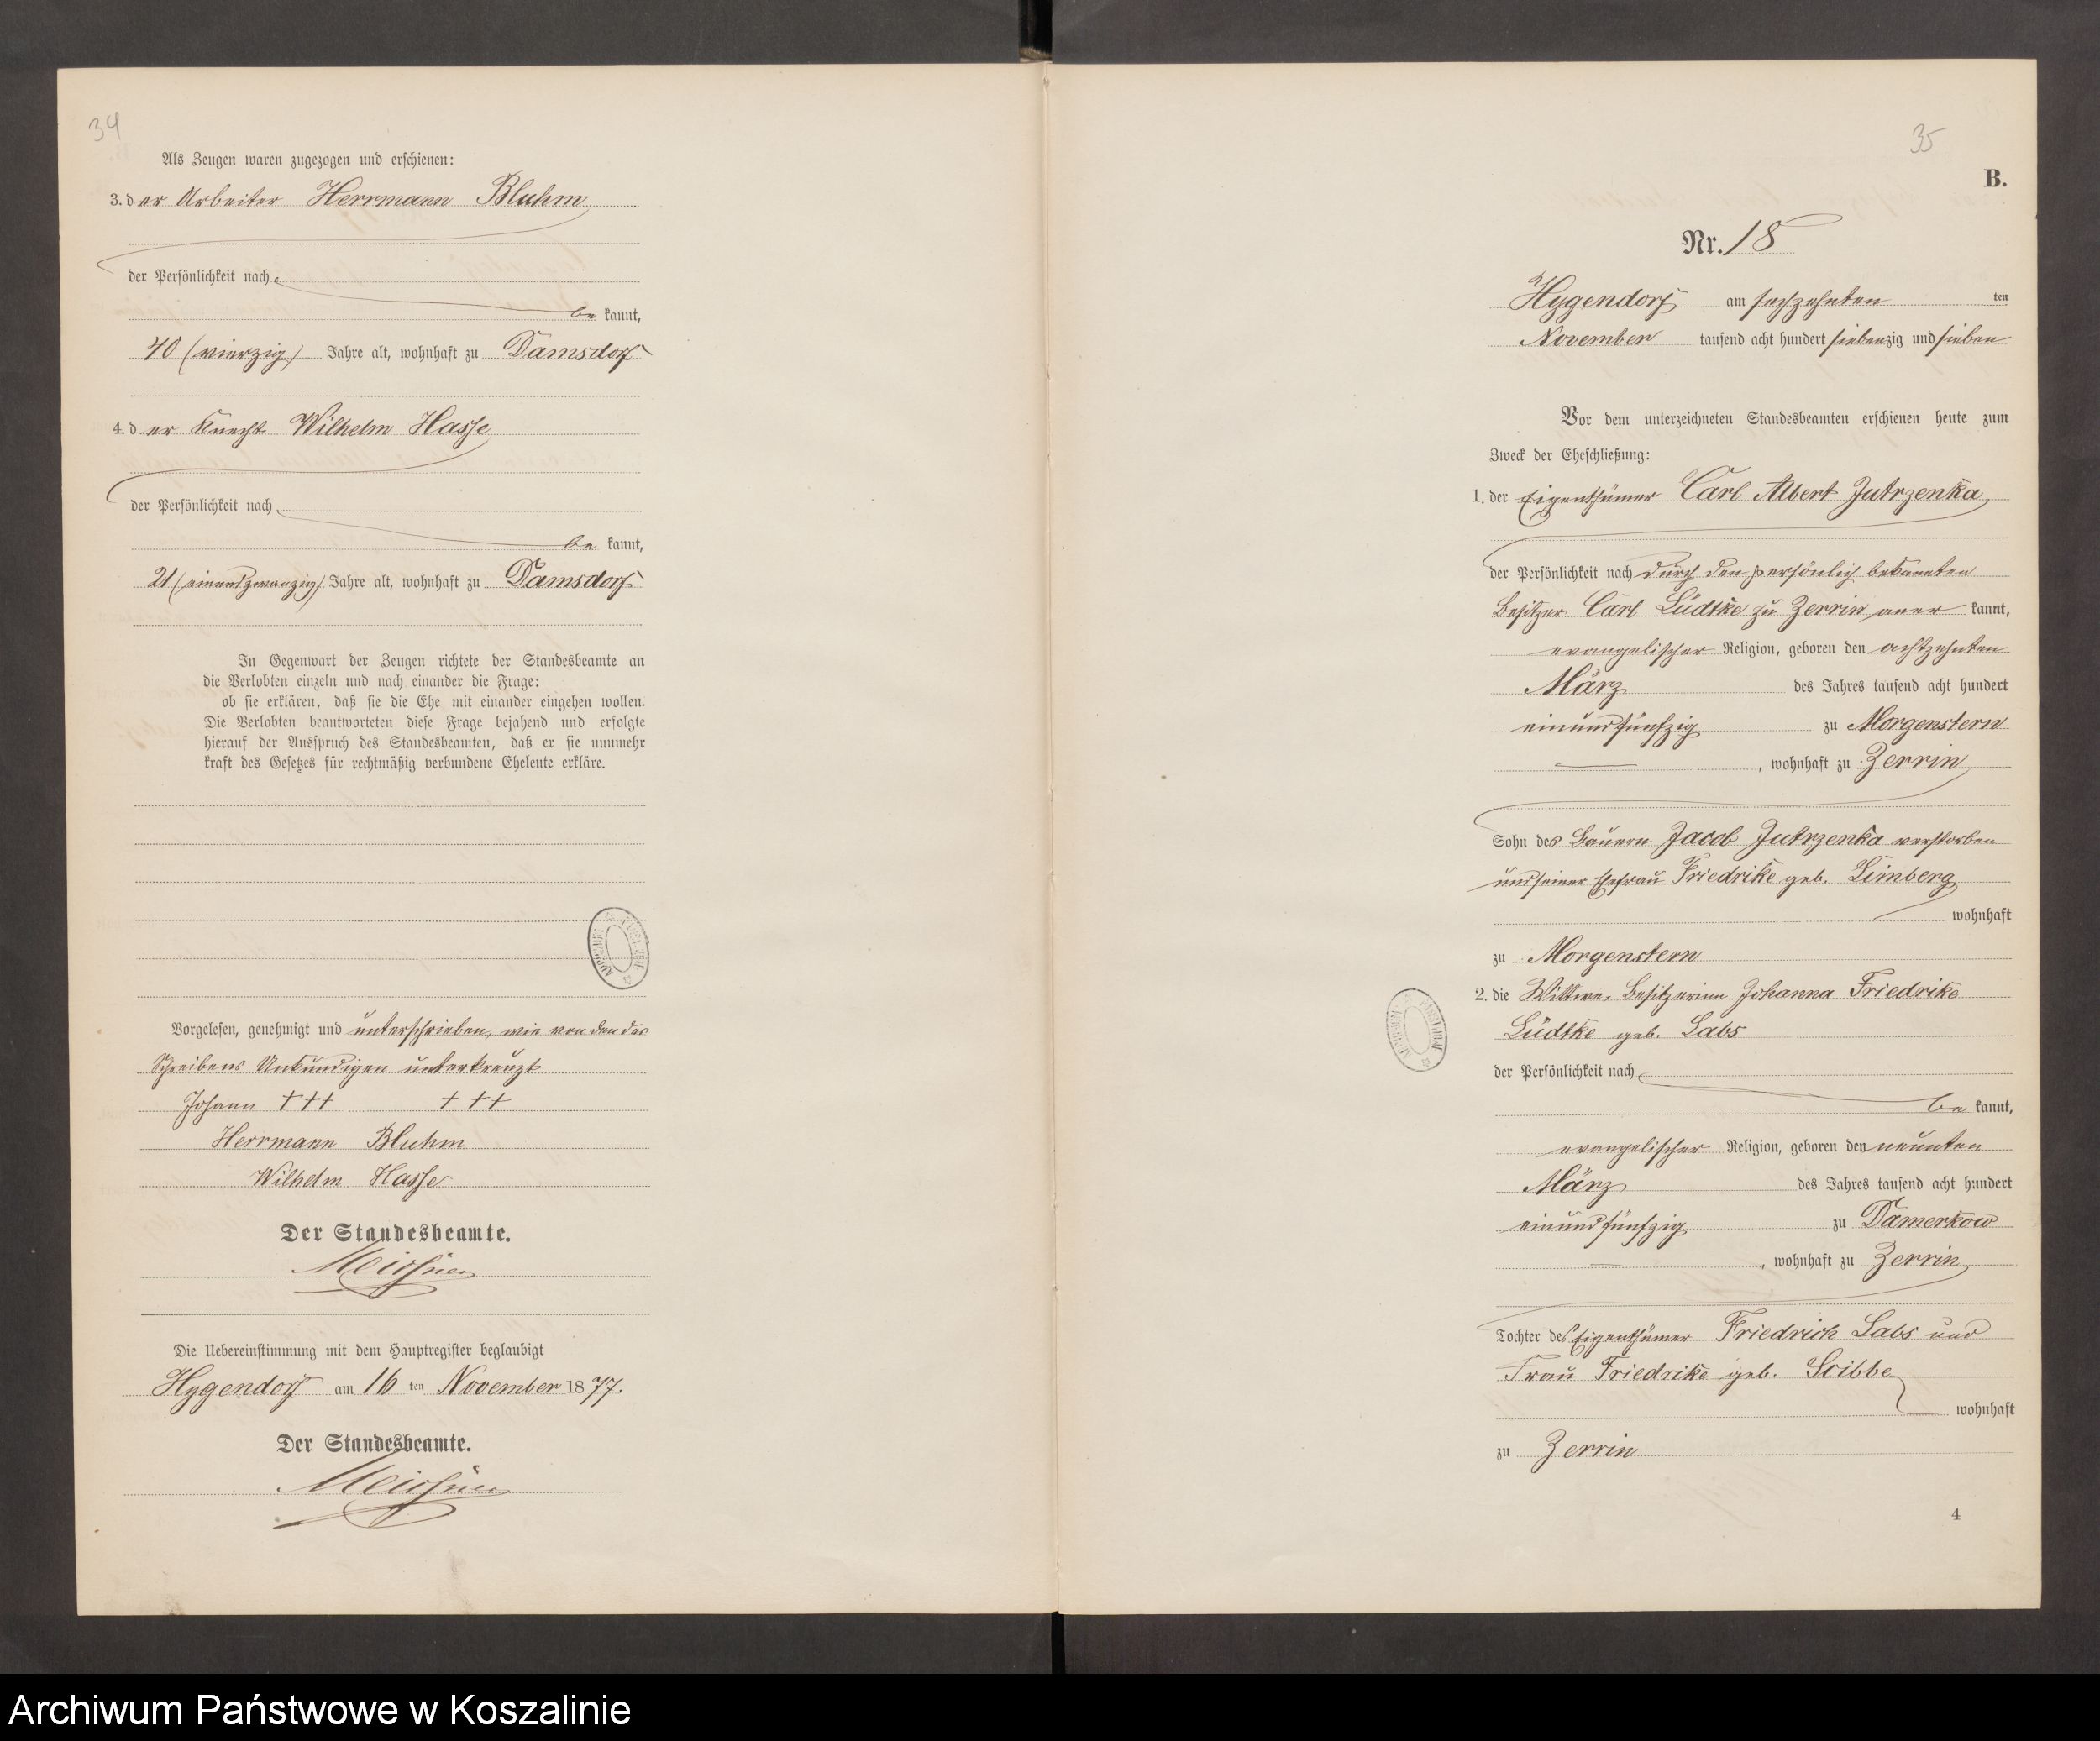 34
Als Zeugen waren zugezogen und erschienen:
3. der Arbeiter Herrmann Bluhm
der Persönlichkeit nach
be kannt,
40 (vierzig) Jahre alt, wohnhaft zu Damsdorf
4. der Knecht Wilhelm Hasse
der Persönlichkeit nach
be kannt,
21 (einundzwanzig) Jahre alt, wohnhaft zu Damsdorf
In Gegenwart der Zeugen richtete der Standesbeamte an
die Verlobten einzeln und nach einander die Frage:
ob sie erklären, daß sie die Ehe mit einander eingehen wollen.
Die Verlobten beantworteten diese Frage bejahend und erfolgte
hierauf der Ausspruch des Standesbeamten, daß er sie nunmehr
kraft des Gesetzes für rechtmäßig verbundene Eheleute erkläre.
Vorgelesen, genehmigt und unterschrieben, wie von den des
Schreibens Unkundigen unterkreuzt
Johann +++ +++
Herrmann Bluhm
Wilhelm Hasse
Der Standesbeamte.
Die Uebereinstimmung mit dem Hauptregister beglaubigt
Hygendorf am 16 ten November 1877.
Der Standesbeamte.
35
B.
Nr. 18
Hygendorf am sechzehnten ten
November tausend acht hundert siebenzig und sieben
Vor dem unterzeichneten Standesbeamten erschienen heute zum
Zweck der Eheschließung:
1. der Eigenthümer Carl Albert Jutrzenka
der Persönlichkeit nach durch den persönlich bekannten
Besitzer Carl Lüdtke zu Zerrin aner kannt,
evangelischer Religion, geboren den achtzehnten
März des Jahres tausend acht hundert
einundfünfzig zu Morgenstern
, wohnhaft zu Zerrin
Sohn des Bauern Jacob Jutrzenka verstorben
und seiner Ehefrau Friedrike geb. Limberg
wohnhaft
zu Morgenstern
2. die Wittwe, Besitzerinn Johanna Friedrike
Lüdtke geb. Labs
der Persönlichkeit nach
be kannt,
evangelischer Religion, geboren den neunten
März des Jahres tausend acht hundert
einundfünfzig zu Damerkow
, wohnhaft zu Zerrin
Tochter des Eigenthümer Friedrich Labs und
Frau Friedrike geb. Scibbe
wohnhaft
zu Zerrin
4
Archiwum Państwowe w Koszalinie